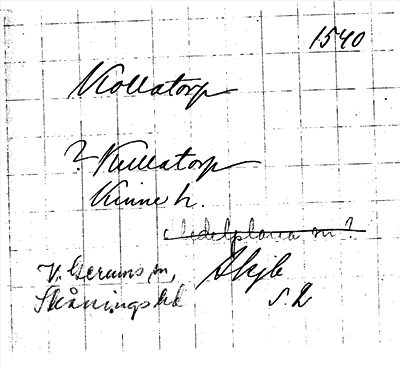 1540
Kollatorp
? Kullatorp
Kinne h.
Medelplana sn?
V. Gerums sn, Skjb
Skånings hd s. 2